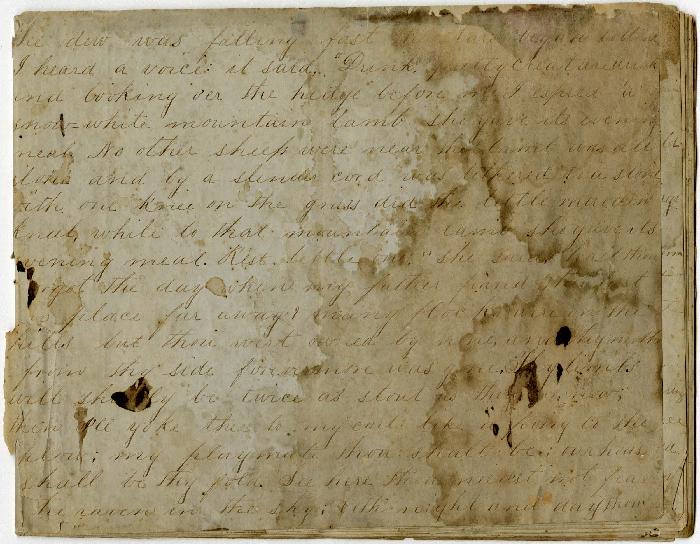 The dew was falling fast the
I heard a voice: it said, "Drink, pretty creature drink
and looking oer the hedge before me I espied a
snow-white mountain lamb she gave its evening
meal. No other sheep were near the lamb was all
alone and by a slender cord was tethered to a stone
with one knee on the grass did the little maiden
kneel, while to that mountain lamb she gave its
evening meal. Rest little one," she said
forgot the day when my father found thee
place far away! many flocks were on the
hills but thou wert owned by none, and thy mother
from thy side forevermore was gone. Thy limbs
will shortly be twice as stout as they are now;
then I'll yoke thee to my cart like a pony to the
plow; my playmate thou shalt be; our house
shall be thy fold. See here thou needest not fear
The raven in the sky; both night and day thou